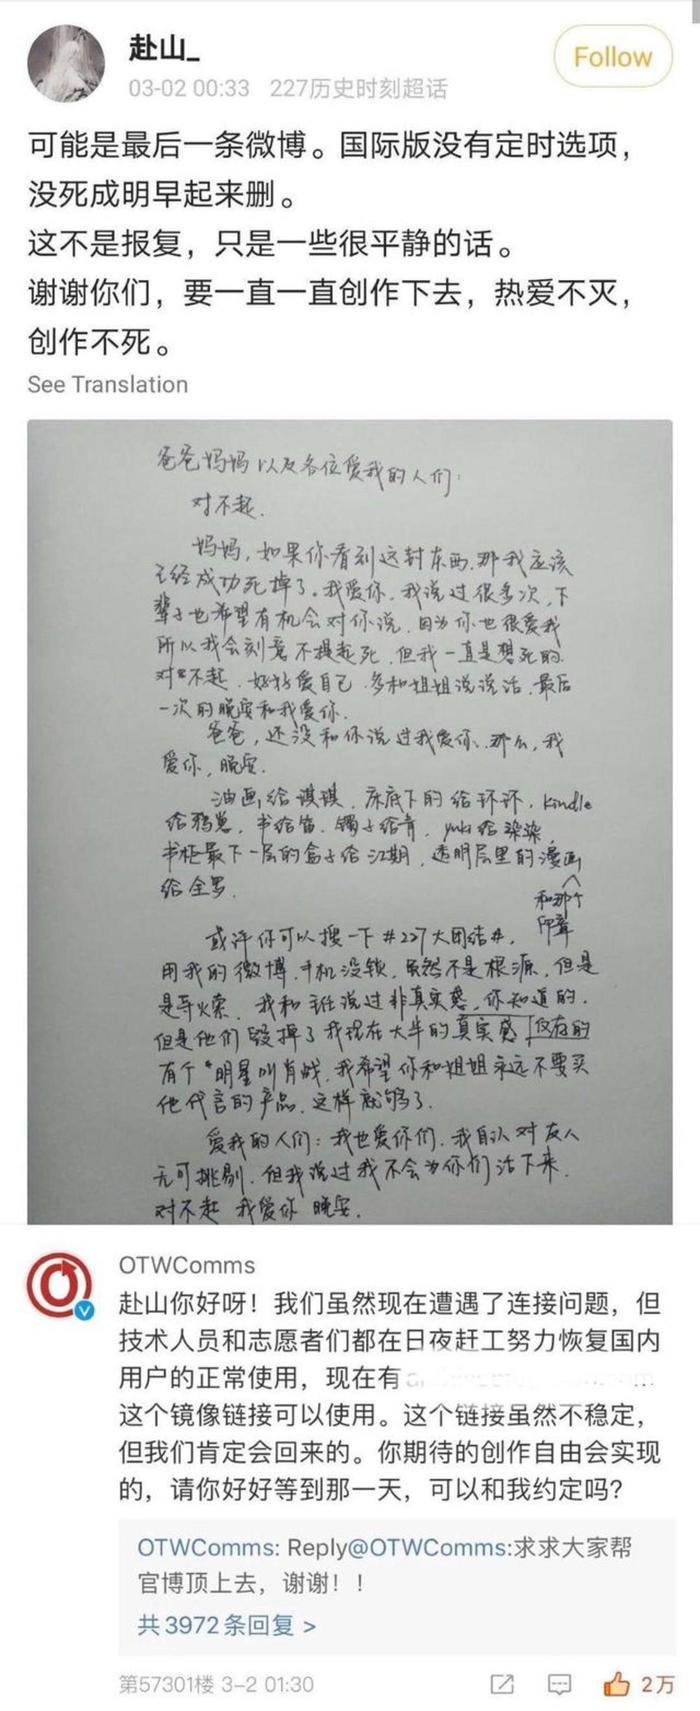 赴山_
Follow
03-02 00:33 227历史时刻超话
可能是最后一条微博。国际版没有定时选项，
没死成明早起来删。
这不是报复，只是一些很平静的话。
谢谢你们，要一直一直创作下去，热爱不灭，
创作不死。
See Translation
爸爸妈妈以及各位爱我的人们：
对不起.
妈妈，如果你看到这封东西.那我应该
已经成功死掉了。我爱你.我说过很多次，下
辈子也希望有机会对你说.因为你也很爱我
所以我会刻意不提起死.但我一直是想死的.
对不起.好好爱自己.多和姐姐说说话.最后
一次的晚安和我爱你.
爸爸，还没和你说过我爱你.那么，我
爱你，晚安.
油画给谋琪.床底下的给环环.kindle
给鸦崽.书给笛.镯子给青.yuki给染染.
书柜最下一层的盒子给江期，透明层里的漫画
和那个
印章
给全罗.
或许你可以搜一下#227大团结#.
用我的微博.手机没锁.虽然不是根源.但是
是导火索.我和 说过非真实感.你知道的.
但是他们毁掉了我现在大半的真实感 仅存的
有个“明星叫肖战.我希望你和姐姐永远不要买
他代言的产品.这样就够了.
爱我的人们：我也爱你们.我自认对友人
无可挑剔.但我说过我不会为你们活下来.
对不起 我爱你 晚安.
OTWComms
赴山你好呀！我们虽然现在遭遇了连接问题，但
技术人员和志愿者们都在日夜赶工努力恢复国内
用户的正常使用，现在有
这个镜像链接可以使用。这个链接虽然不稳定，
但我们肯定会回来的。你期待的创作自由会实现
的，请你好好等到那一天，可以和我约定吗？
OTWComms: Reply@OTWComms:求求大家帮
官博顶上去，谢谢！！
共3972条回复 >
第57301楼 3-2 01:30
2万